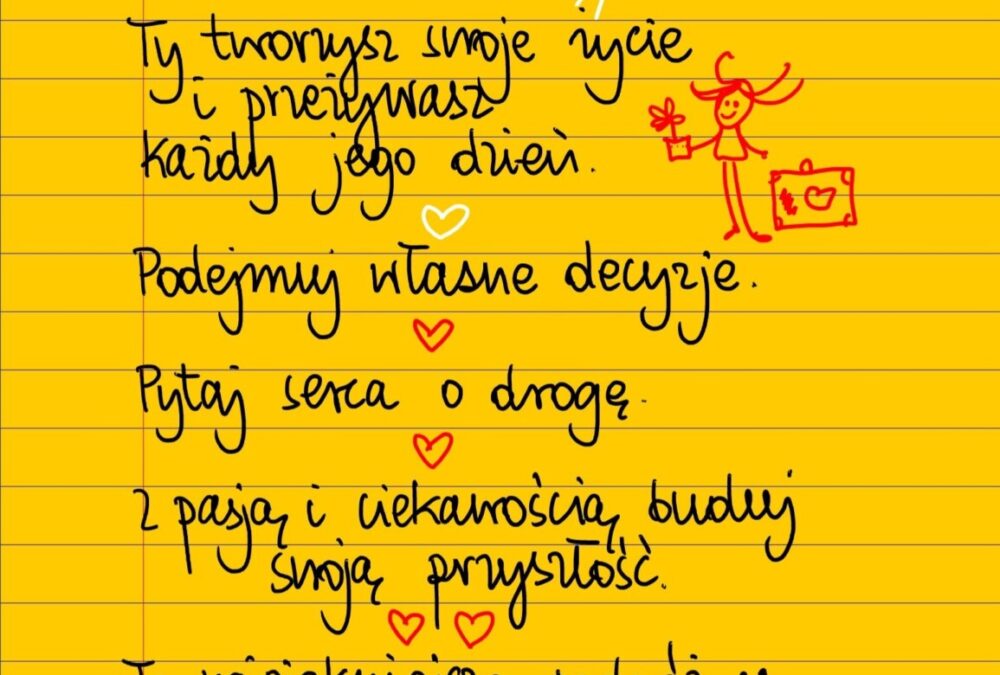 Ty tworzysz swoje życie
i przeżywasz
każdy jego dzień.
Podejmuj własne decyzje.
Pytaj serca o drogę.
Z pasją i ciekawością buduj
swoją przyszłość.